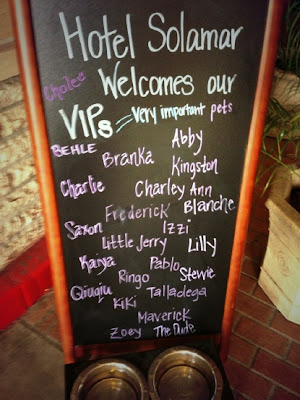 Hotel Solamar
Cholee Welcomes our
VIPs = Very important pets
BEHLE Branka Abby
Kingston
Charlie Charley Ann
Frederick Blanche
Saxon Izzi
Little Jerry Lilly
Kaiya Pablo Stewie
Ringo
Qiuqiu Talladega
Kiki
Maverick
Zoey The Dude